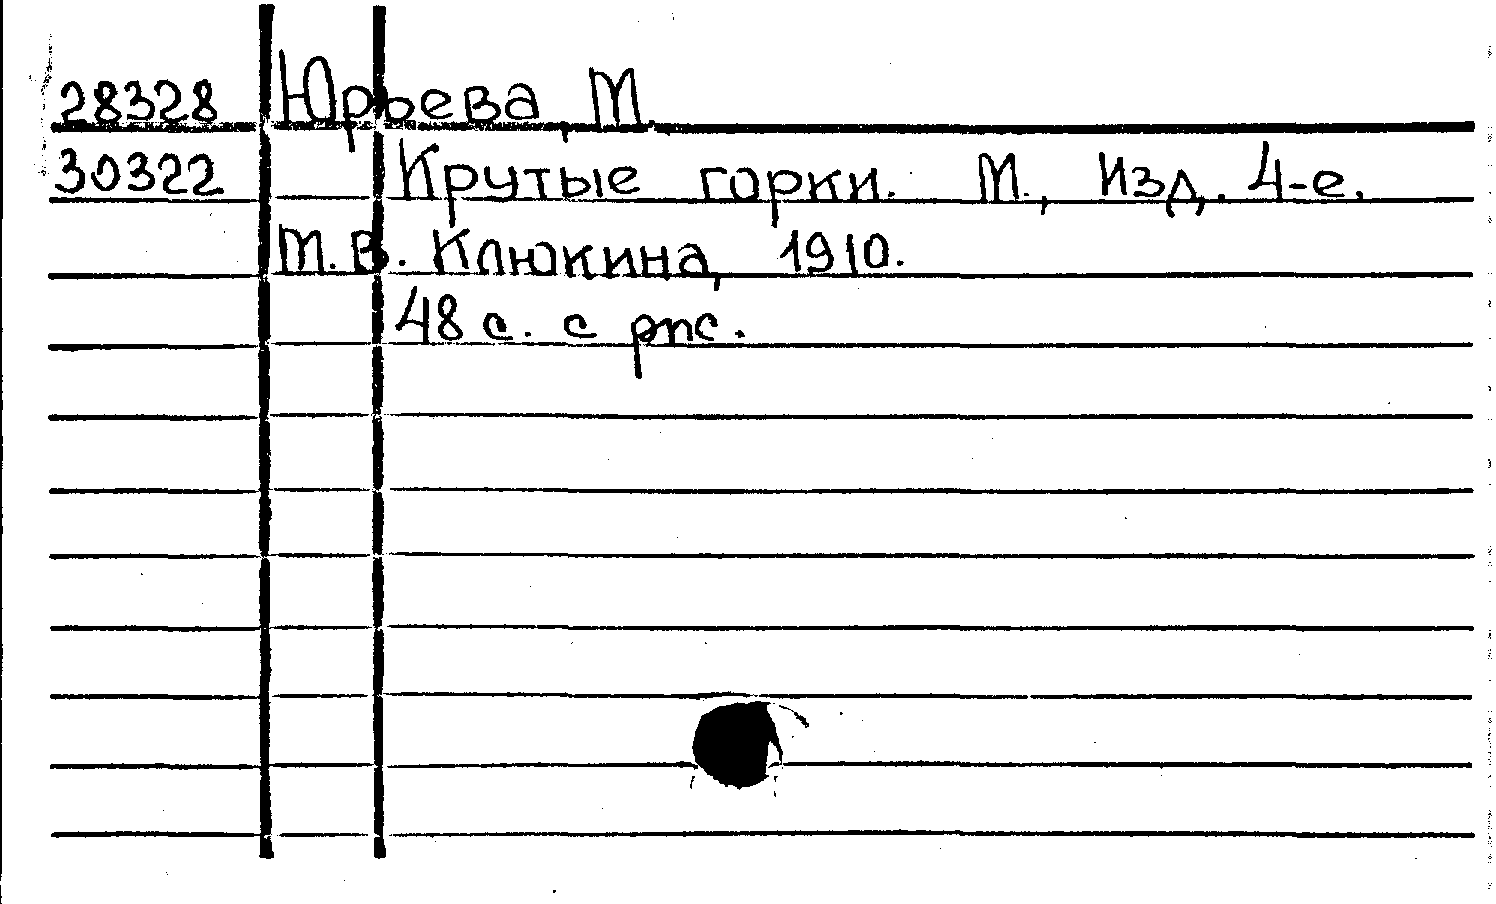 28328 Юрьева, М.
30322 Крутые горки. М., Изд. 4-е.
М.В. Клюкина, 1910.
48 с. с рис.